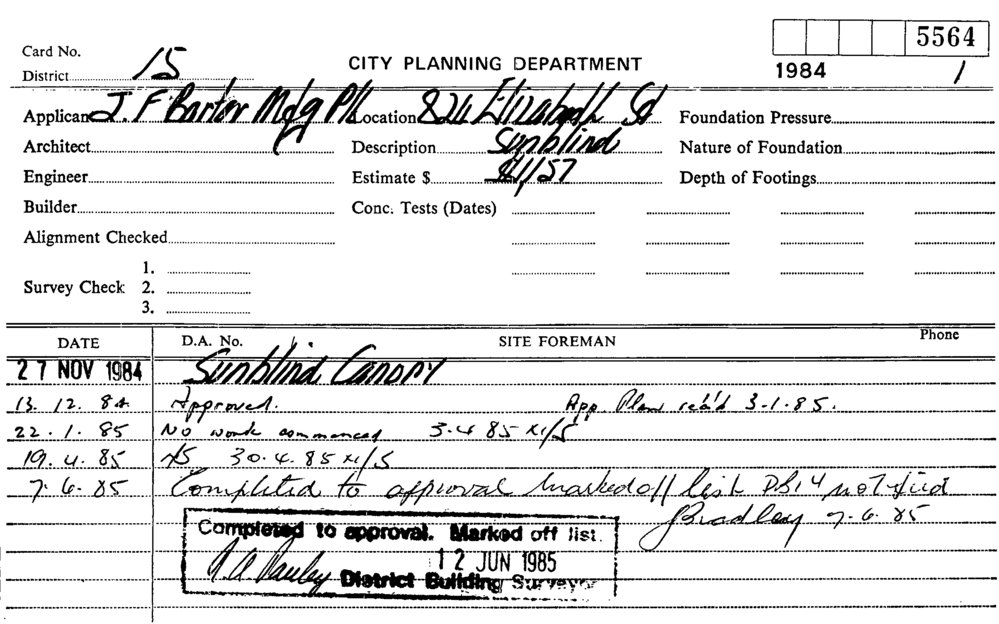 5564
Card No.
District 15
CITY PLANNING DEPARTMENT
1984 1
Applicant J. F Barter Mdg P/L Location 82a Elizabeth St Foundation Pressure
Architect Description Sunblind Nature of Foundation
Engineer Estimate $ $1,157 Depth of Footings
Builder Conc. Tests (Dates)
Alignment Checked
1.
Survey Check 2.
3.
DATE D.A. No. SITE FOREMAN Phone
27 NOV 1984 Sunblind Canopy
13. 12. 84. Approved. App. Plan rec'd 3-1-85.
22. 1. 85 No work commenced 3.4.85
19. 4. 85 30.4.85
7. 6. 85 Completed to approval marked off list notified
Bradley 7.6.85
Completed to approval. Marked off list.
12 JUN 1985
District Building Surveyor